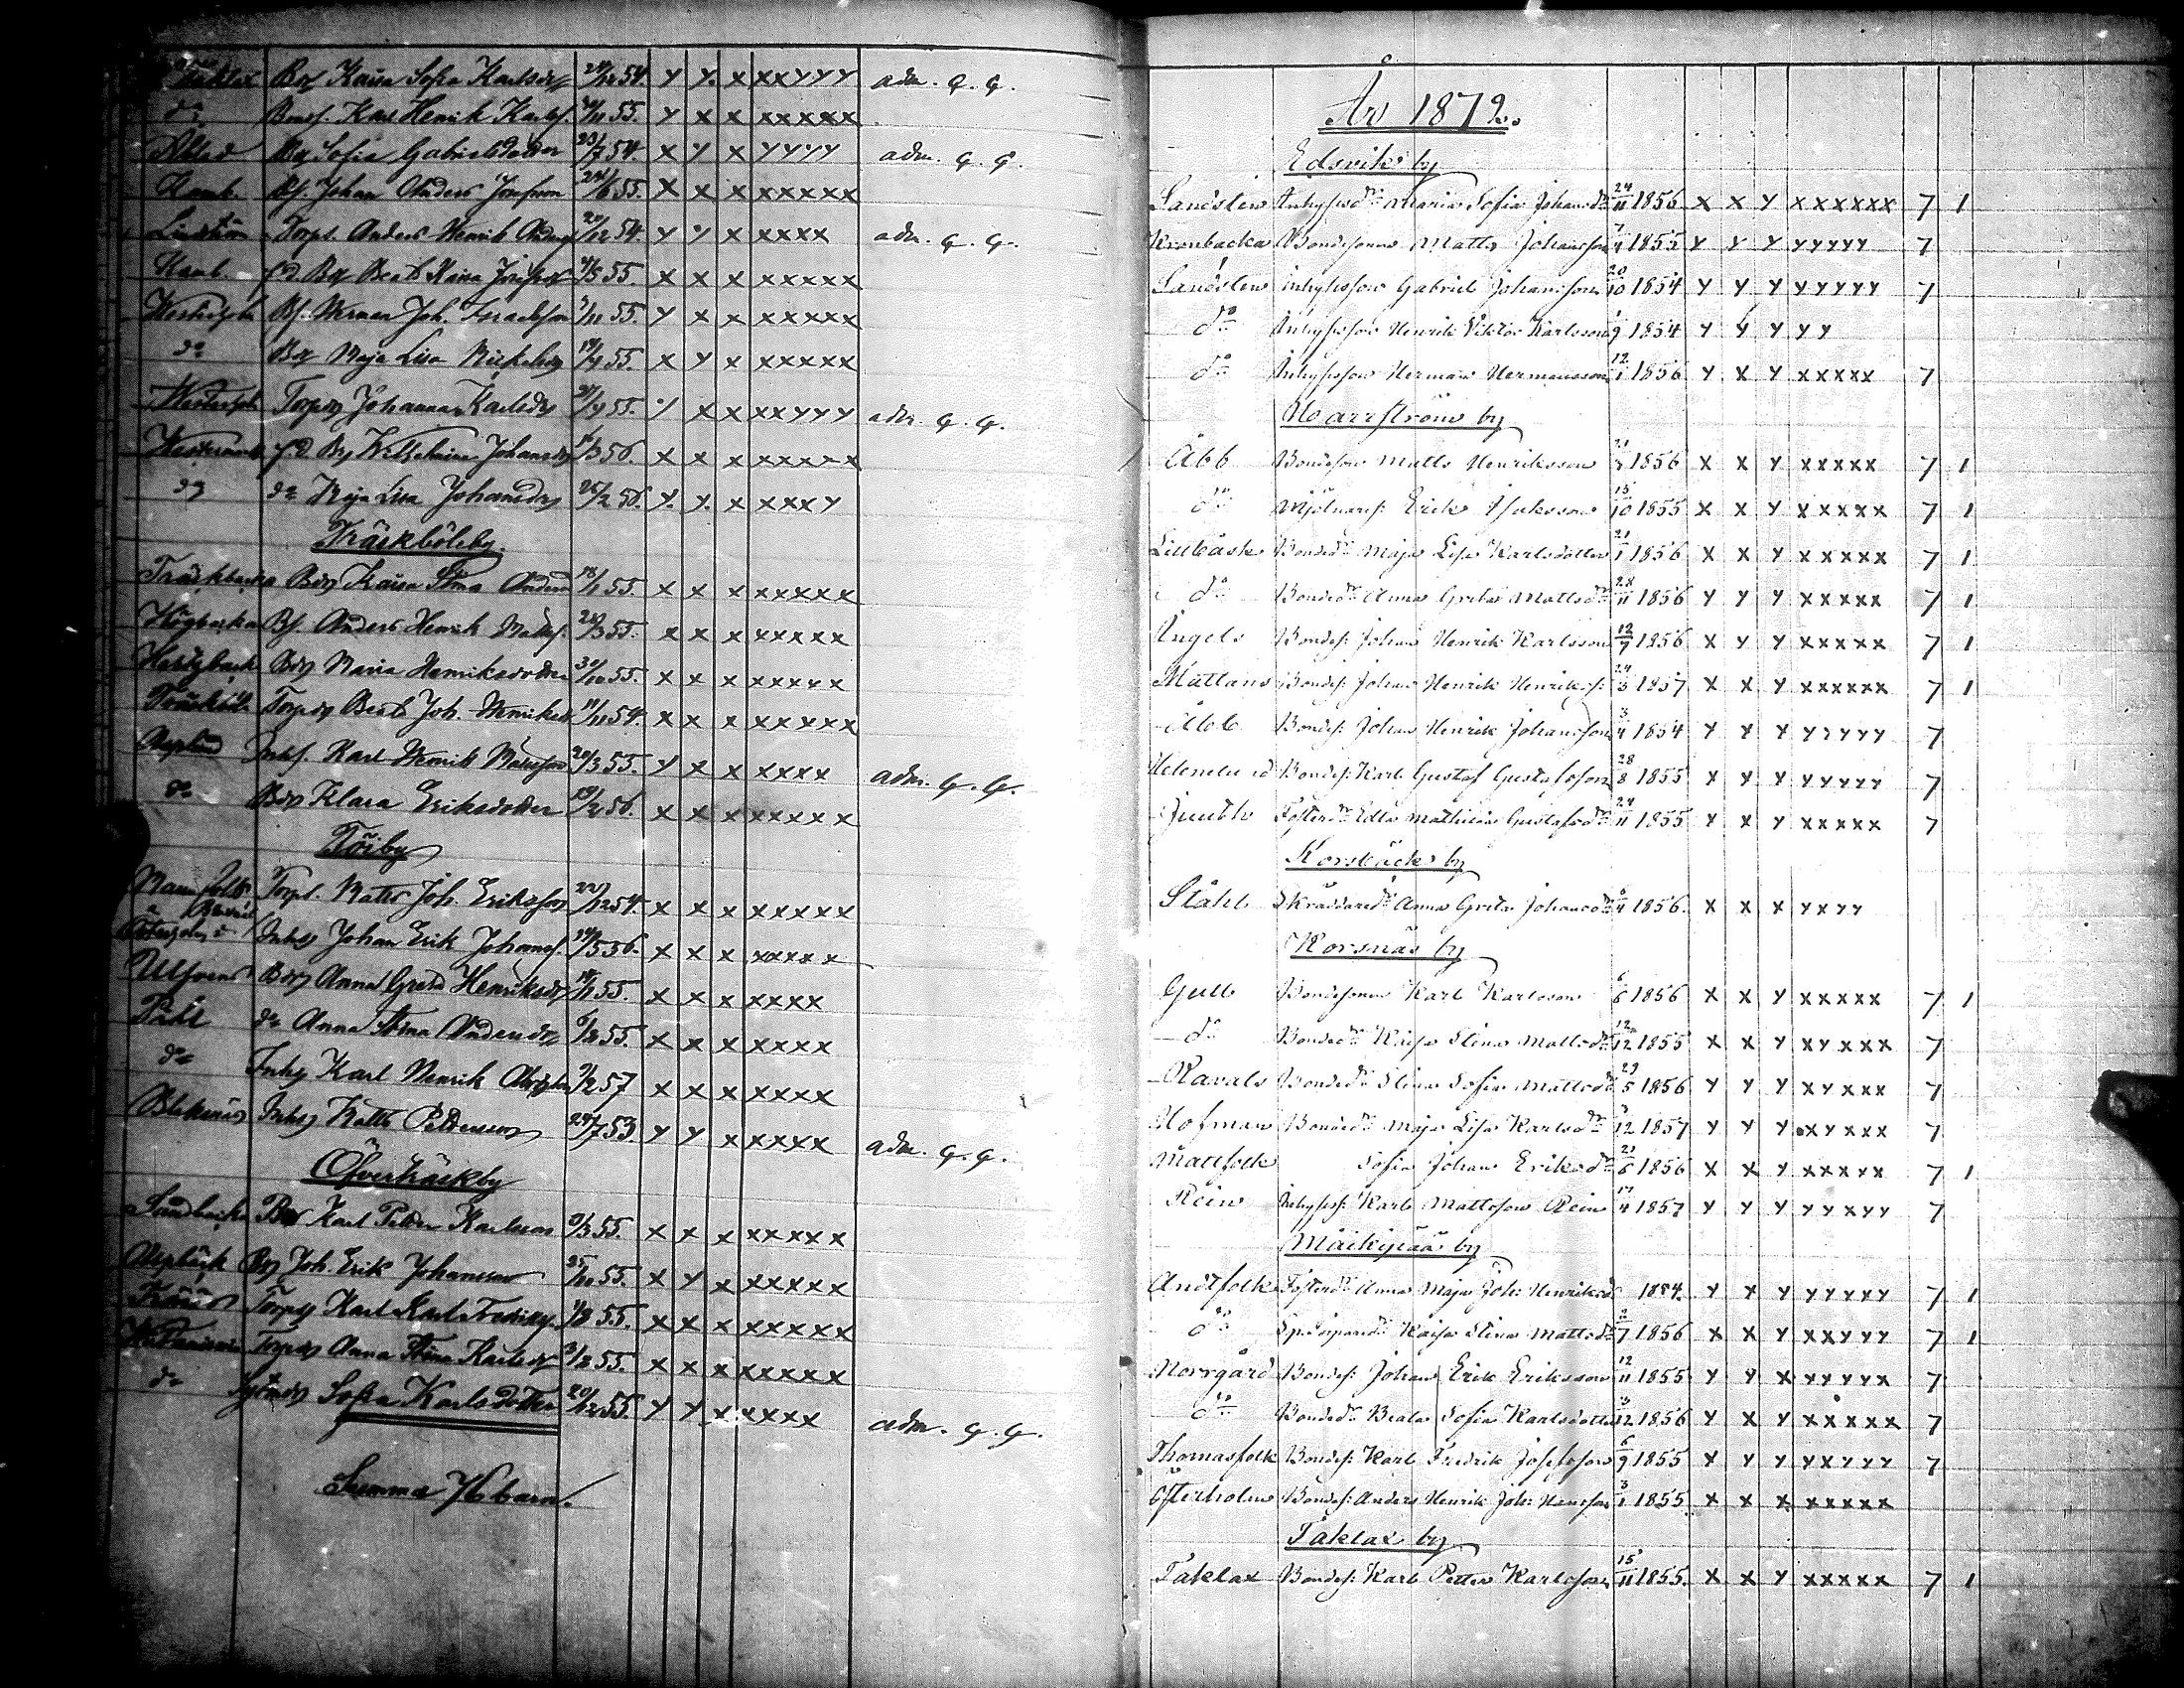 Taklax Bdr Kaisa Sofia Karlsdr 24/12 54. y y. x xxyyy adm. q. q.
do Bondes. Karl Henrik Karls. 30/11 55. y x x xxxxx
Bdr Sofia Gabrielsdotter 23/7 54. x y x yyyy adm. q. q.
Bs. Johan Anders 24/6 55. x x x xxxxx
Lindström Torpl. Anders Henrik 20/12 54. y y x xxxx adm. q. q.
Bdr Beata Kaisa 4/5 55. x x x xxxxx
Bs. Herman Joh. Israelsson 3/11 55. y x x xxxxx
do Bdr Maja Lisa 19/9 55. x y x xxxxx
Torpdr Johanna Karlsdr 30/9 55. y x x xxyyy adm. q. q.
Bdr Wilhelmina Johansdr 1/3 56. x x x xxxxx
do do Maja Lisa Johansdr 25/2 56. y. y. x xxxy
Träskböleby.
Träskbacka Bdr Kaisa Stina 18/1 55. x x x xxxxx
Högbacka Bs. Anders Henrik Matts. 20/3 55. x x x xxxxx
Bdr Maria Henriksdotter 30/10 55. x x x xxxxx
Träskböle Torpdr Beata Joh. Henriksdr 11/11 54. x x x xxxxx
Asplund Inhs. Karl Henrik 20/3 55. y x x xxxx adm. q. q.
do Bdr Klara Eriksdotter 19/2 56. x x x xxxxx
Töjby
Torpl. Matts Joh. Eriksson 22/12 54. x x x xxxxx
Inhs Johan Erik Johans. 14/5 56. x x x xxxxx
Ulfvens Bdr Anna Greta Henriksdr 18/11 55. x x x xxxx
Påhl do Anna Stina Andersdr 6/12 55. x x x xxxx
do Inhs Karl Henrik 9/2 57 x x x xxxx
Bleknäs Inhs Matts Pettersson 24/7 53 y y x xxxx adm. q. q.
Öfverträskby
Sandbacka Bs Karl Petter Karlsson 9/3 55. x x x xxxxx
Aspbäck Bs Joh. Erik Johansson 25/11 55. x y x xxxxx
Torps Karl Karl Fredriks. 1/8 55. x x x xxxxx
Torpdr Anna Stina Karlsdr 3/12 55. x x x xxxxx
do Sofia Karlsdotter 20/12 55. y y x xxxx adm. q. q.
Summa barn.
År 1872.
Edsvik by
Sandsten Inhysesdr Maria Sofia Johansdr 24/11 1856. x x y xxxxxx 7 1
Kronbacka Bondesonen Matts Johansson 7/4 1855 y y y yyyyy 7
Sandsten Inhysson Gabriel Johansson 20/10 1854 y y y yyyyy 7
do Inhysson Henrik Viktor Karlsson 1/9 1854 y y y yy
do Inhysson Herman Hermansson 12/1 1856 y x y xxxxx 7
Harrström by
Abb Bondeson Matts Henriksson 21/3 1856 x x y xxxxx 7 1
do Mjölnares. Erik Isaksson 15/10 1855 x x y xxxxx 7 1
Lillbäck Bondedr Maja Lisa Karlsdotter 21/1 1856 x x y xxxxx 7 1
do Bondedr Anna Greta Mattsdr 28/11 1856 y y y xxxxx 7 1
Ingels Bondes. Johan Henrik Karlsson 12/9 1856 x y y xxxxx 7 1
Mattans Bondes. Johan Henrik Henriks. 24/3 1857 x x y xxxxxx 7 1
Abb Bondes. Johan Henrik Johansson 3/4 1854 y y y yyyyy 7
Bondes. Karl Gustaf Gustafsson 28/8 1855 x y y yyyyy 7
Juuth Fosterdr Edla Mathilda Gustafsdr 24/11 1855 y x y xxxxx 7
Korsbäck by
Ståhl Skräddaredr Anna Greta Johansdr 6/4 1856. x x x yxyy
Korsnäs by
Gull Bondesonen Karl Karlsson 6/6 1856 x x y xxxxx 7 1
do Bondedr Kajsa Stina Mattsdr 12/12 1855 x x y xyxxx 7
Ravals Bondedr Stina Sofia Mattsdr 29/5 1856 y y y xyxxx 7
Hofman Bondedr Maja Lisa Karlsdr 9/12 1857 y y y xyxxx 7
Mattfolk Sofia Johan Eriksdr 21/6 1856 x x y xxxxx 7 1
Rein Inhyses. Karl Mattsson Rein 17/4 1857 y y y yyxyy 7
Moikipää by
Andtfolk Fosterdr Anna Maja Joh: Henriksdr 1854. y y y yyyyy 7 1
do Kajsa Stina Mattsdr 2/7 1856 x x y xxyyy 7 1
Norrgård Bondes. Johan Erik Eriksson 12/11 1855 y y x xyyyx 7
do Bondedr Beata Sofia Karlsdotter 3/12 1856 y x y xxxxx 7
Thomasfolk Bondes. Karl Fredrik Josefsson 6/9 1855 y y y yxyyy 7
Österholm Bondes. Anders Henrik Joh: Hansson 3/1 1855 x x x xxxxx
Taklax by
Taklax Bondes. Karl Petter Karlsson 15/11 1855. x x y xxxxx 7 1